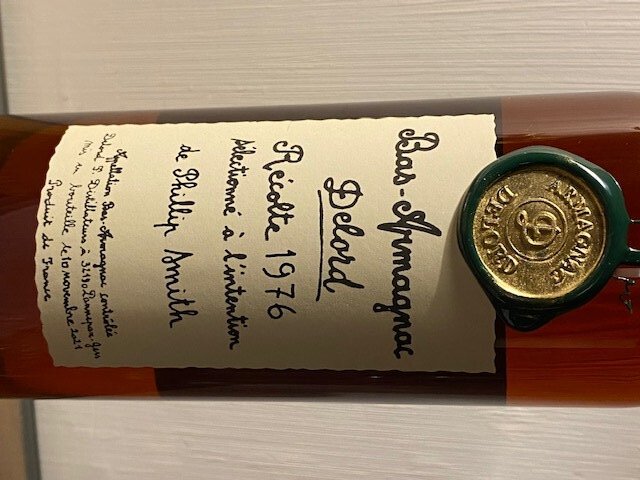 ARMAGNAC
DELORD
Bas-Armagnac
Delord
Récolte 1976
sélectionné à l'intention
de Phillip Smith
Appellation Bas-Armagnac contrôlée
Delord P. Distillateurs à 32190 Lannepax, Gers
mis en bouteille le 10 novembre 2021
Produit de France